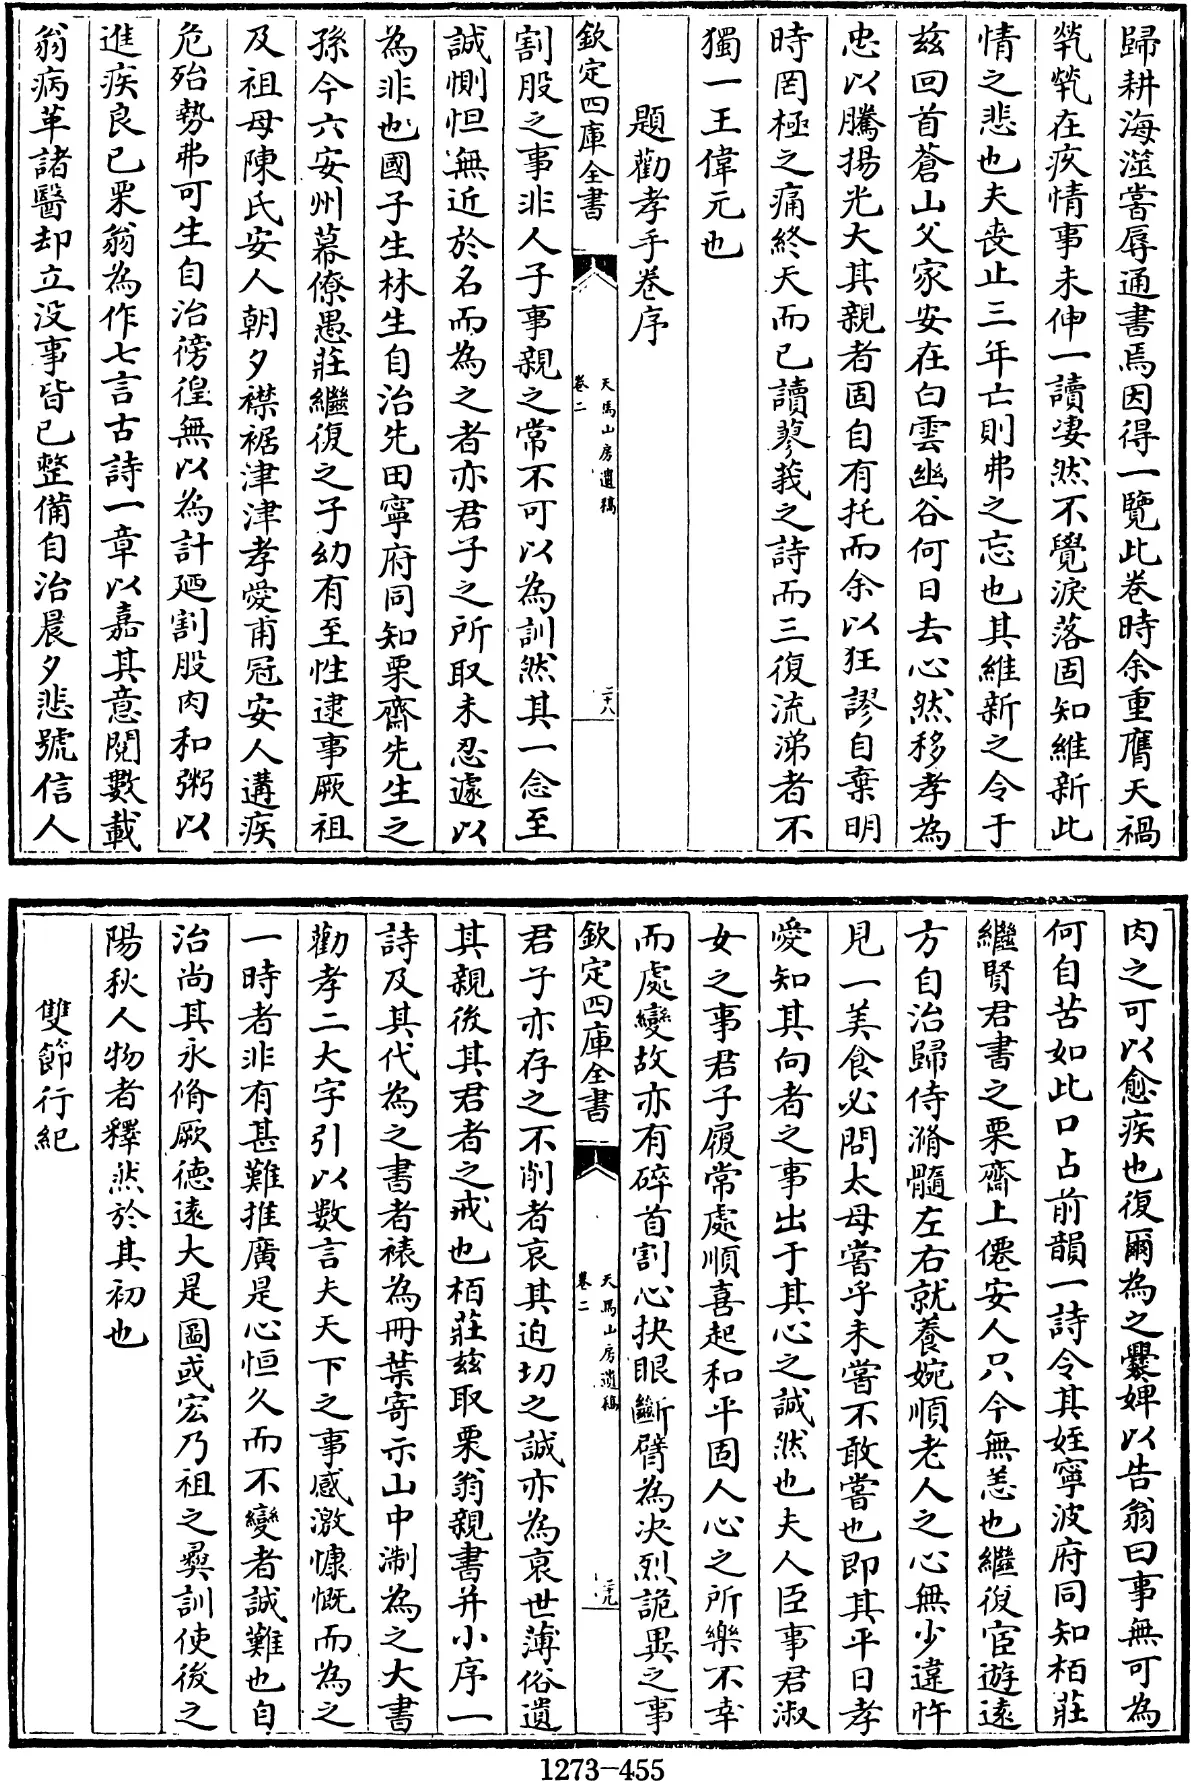 歸耕海澨嘗辱通書焉因得一覽此卷時余重膺天禍
煢煢在疚情事未伸一讀凄然不覺淚落固知維新此
情之悲也夫喪止三年亡則弗之忘也其維新之令于
兹回首蒼山父家安在白雲幽谷何日去心然移孝為
忠以騰揚光大其親者固自有托而余以狂謬自棄明
時罔極之痛終天而已讀蓼莪之詩而三復流涕者不
獨一王偉元也
題勸孝手卷序
欽定四庫全書
天馬山房遺稿
卷二
二十八
割股之事非人子事親之常不可以為訓然其一念至
誠惻怛無近於名而為之者亦君子之所取未忍遽以
為非也國子生林生自治先田寧府同知栗齋先生之
孫今六安州幕僚愚莊繼復之子幼有至性逮事厥祖
及祖母陳氏安人朝夕襟裾津津孝愛甫冠安人遘疾
危殆勢弗可生自治徬徨無以為計廼割股肉和粥以
進疾良已栗翁為作七言古詩一章以嘉其意閱數載
翁病革諸醫却立没事皆已整備自治晨夕悲號信人
肉之可以愈疾也復爾為之爨婢以告翁曰事無可為
何自苦如此口占前韻一詩令其姪寧波府同知栢莊
繼賢君書之栗齋上僊安人只今無恙也繼復宦遊遠
方自治歸侍滫髓左右就養婉順老人之心無少違忤
見一美食必問太母嘗乎未嘗不敢嘗也即其平日孝
愛知其向者之事出于其心之誠然也夫人臣事君淑
女之事君子履常處順喜起和平固人心之所樂不幸
而處變故亦有碎首割心抉眼斷臂為决烈詭異之事
欽定四庫全書
天馬山房遺稿
卷二
二十九
君子亦存之不削者哀其迫切之誠亦為哀世薄俗遺
其親後其君者之戒也栢莊兹取栗翁親書并小序一
詩及其代為之書者裱為冊葉寄示山中淛為之大書
勸孝二大字引以數言夫天下之事感激慷慨而為之
一時者非有甚難推廣是心恒久而不變者誠難也自
治尚其永脩厥德遠大是圖或宏乃祖之彞訓使後之
陽秋人物者釋然於其初也
雙節行紀
1273-455